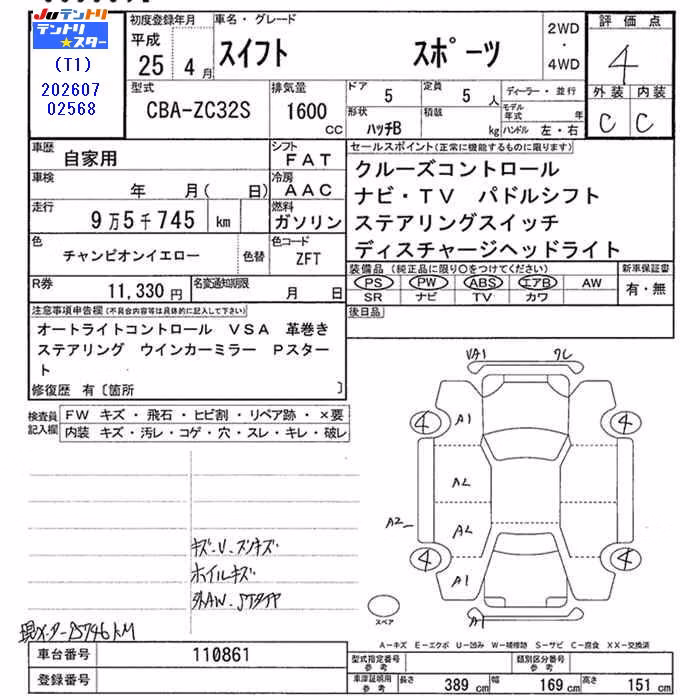 Juテントリ
テントリ
★スター
(T1)
202607
02568
初度登録年月
平成
25 4月
車名・グレード
スイフト スポーツ
2WD
・
4WD
評価点
4
外装 内装
C C
型式
CBA-ZC32S
排気量
1600
CC
ドア
5
定員
5 人
形状
ハッチB
積載
kg
ディーラー・並行
モデル年式 年
ハンドル 左・右
車歴
自家用
シフト
FAT
車検
年 月( 日)
冷房
AAC
走行
9万5千745 km
燃料
ガソリン
色
チャンピオンイエロー
色替
色コード
ZFT
R券
11,330円
名変通知期限
月 日
セールスポイント(正常に機能するものに限ります)
クルーズコントロール
ナビ・TV パドルシフト
ステアリングスイッチ
ディスチャージヘッドライト
装備品(純正品に限り○をつけてください)
PS PW ABS エアB AW
SR ナビ TV カワ
新車保証書
有・無
後日品
注意事項申告欄(不具合内容等は具体的に記入して下さい)
オートライトコントロール VSA 革巻き
ステアリング ウインカーミラー Pスター
ト
修復歴 有〔箇所 〕
検査員
記入欄
FW キズ・飛石・ヒビ割・リペア跡・×要
内装 キズ・汚レ・コゲ・穴・スレ・キレ・破レ
キズ・U・スリキズ
ホイルキズ
社外AW・STタイヤ
現メーター95746KM
A1
A1
4
4
AL
A2
AL
4
4
A1
A1
スペア
A-キズ E-エクボ U-凹み W-補修跡 S-サビ C-腐食 XX-交換済
車台番号
110861
登録番号
型式指定番号
参考
類別区分番号
参考
車庫証明用
参考
長さ 389 cm 幅 169 cm 高さ 151 cm